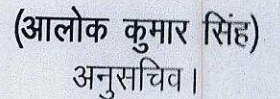 (आलोक कुमार सिंह)
अनुसचिव।